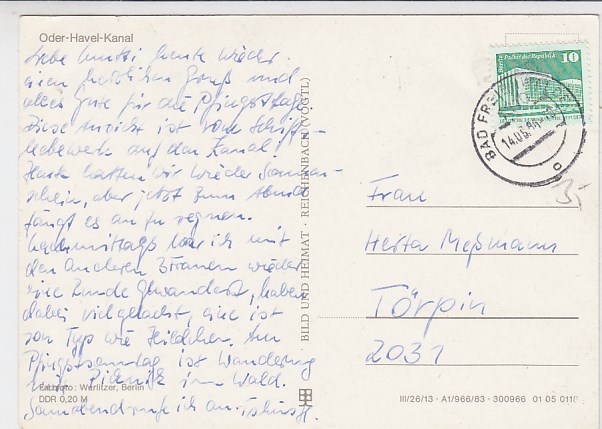 Oder-Havel-Kanal
Liebe Mutti! heute wieder
einen herzlichen Gruß und
alles Gute für die Pfingsttage.
Diese Ansicht ist vom Schiffs-
hebewerk auf den Kanal.
Heute hatten wir wieder Sonnen-
schein, aber jetzt zum Abend
fängt es an zu regnen.
Nachmittags war ich mit
den anderen 2 Frauen wieder
eine Runde gewandert, haben
dabei viel gelacht, eine ist
son Typ wie Heidchen. Am
Pfingstsonntag ist Wanderung
mit Picknik im Wald.
Farbfoto: Werlitzer, Berlin
DDR 0,20 M
Sonnabend rufe ich an.
BILD UND HEIMAT · REICHENBACH (VOGTL)
Berlin, Palast der Republik
10
BAD FREI
14.06.84
Frau
Herta Meßmann
Törpin
2031
III/26/13 · A1/966/83 · 300966 01 05 011